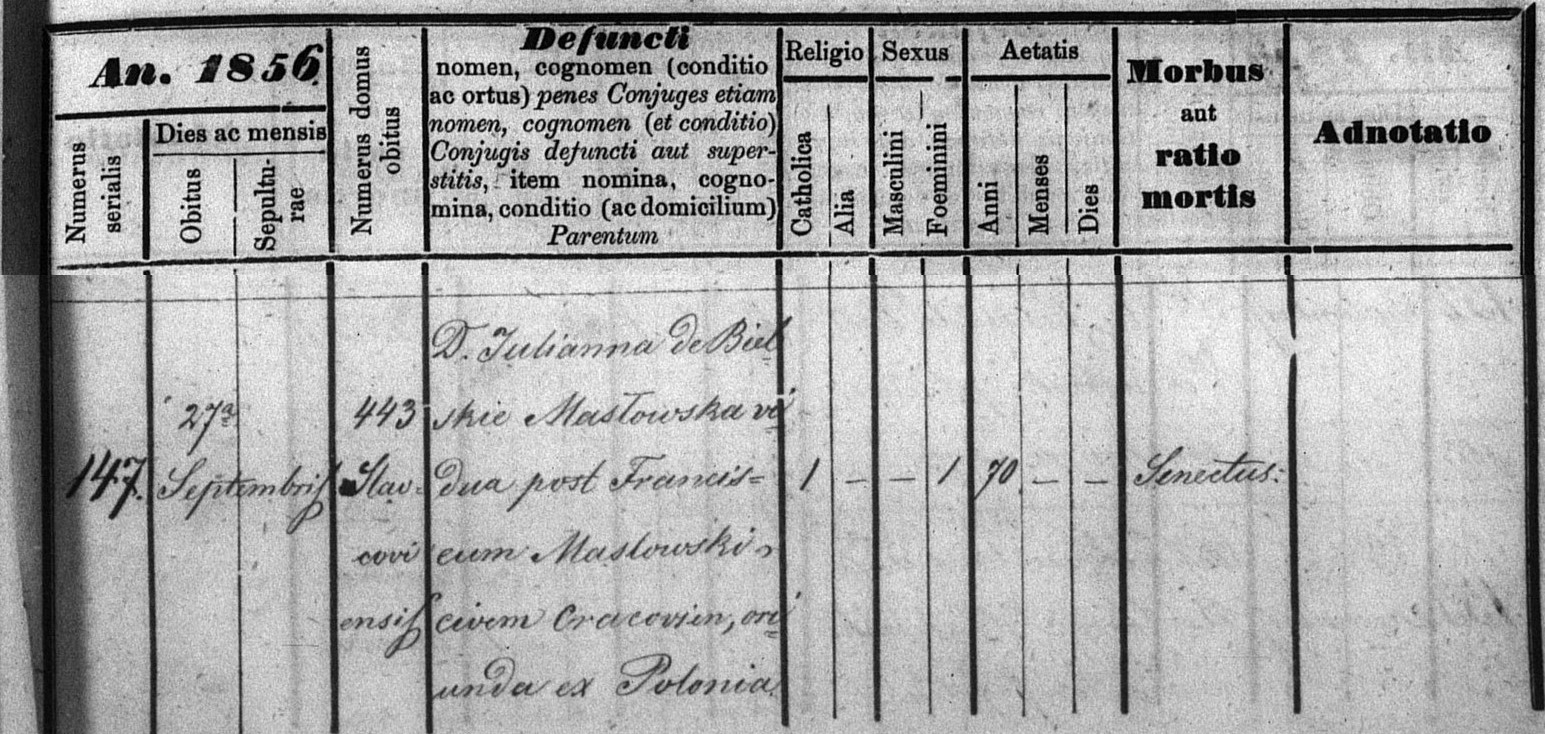 An. 1856
Numerus serialis
Dies ac mensis
Obitus
Sepultu-
rae
Numerus domus
obitus
Defuncti
nomen, cognomen (conditio
ac ortus) penes Conjuges etiam
nomen, cognomen (et conditio)
Conjugis defuncti aut super-
stitis, item nomina, cogno-
mina, conditio (ac domicilium)
Parentum
Religio
Catholica
Alia
Sexus
Masculini
Foeminini
Aetatis
Anni
Menses
Dies
Morbus
aut
ratio
mortis
Adnotatio
147.
27ª
Septembris
443
Slav-
covi
ensis
D. Julianna de Biel
skie Masłowska vi
dua post Francis=
cum Maslowski,
civem Cracovien, ori
unda ex Polonia.
1 – – 1 70 – –
Senectus: